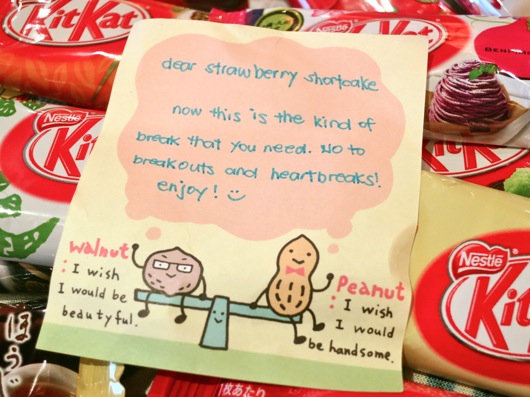 KitKat
dear strawberry shortcake
now this is the kind of
break that you need. No to
breakouts and heartbreaks!
enjoy!
Walnut
: I wish
I would be
beautyful.
Peanut
: I wish
I would
be handsome.
Nestlé
Kit
Nestlé
Kit
Kit
KitKat
ほう
枚あたり